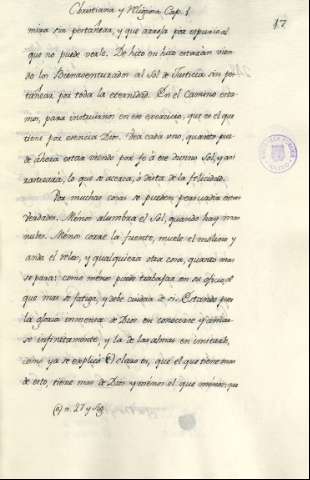 Christiana y Religiosa Cap. 1
17
mira sin pestañear, y que arroja por espurio al
que no puede verlo. De hito en hito estarán vien-
do los Bienaventurados al Sol de Justicia sin pes-
tañear por toda la eternidad. En el Camino esta-
mos, para instruirnos en ese exercicio, que es el que
tiene por esencia Dios. Vea cada uno, quanto pue-
de ahora estar viendo por fé á ese divino Sol, y
rastreará, lo que se acerca, ó dista de la felicidad.
Por muchas cosas se pueden persuadir estas
verdades. Menos alumbra el Sol, quando hay mas
nubes. Menos corre la fuente, muele el molino y
anda el relox, y qualquiera otra cosa, quanto mas
se para: como menos puede trabajar en su oficio, el
que mas se fatiga, y debe cuidar de si. Estando pues
la gloria inmensa de Dios en conocerse y amar-
se infinitamente, y la de las almas en imitarle,
como ya se explicó (a) claro es, que el que tiene mas
de esto, tiene mas de Dios y menos el que menos; que
(a) n. 27 y sig.